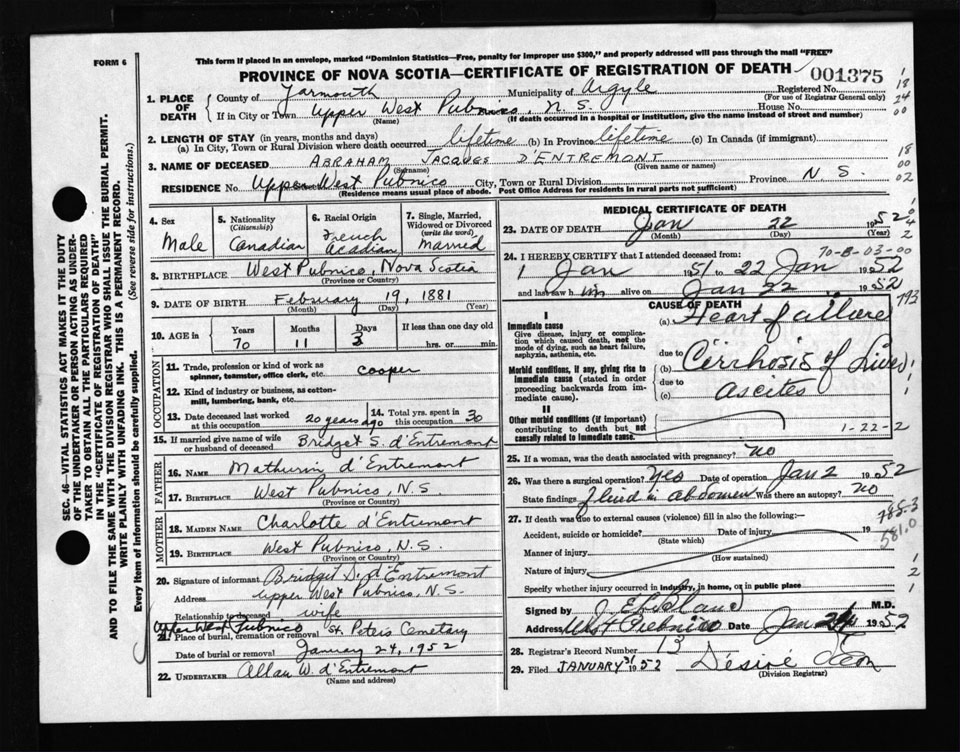 This form if placed in an envelope, marked "Dominion Statistics—Free, penalty for improper use $300," and properly addressed will pass through the mail "FREE"
FORM 6
PROVINCE OF NOVA SCOTIA—CERTIFICATE OF REGISTRATION OF DEATH
001375
1. PLACE OF DEATH
County of Yarmouth Municipality of Argyle Registered No.
(For use of Registrar General only)
If in City or Town Upper West Pubnico, N. S. House No.
(Name) (If death occurred in a hospital or institution, give the name instead of street and number)
2. LENGTH OF STAY (in years, months and days)
(a) In City, Town or Rural Division where death occurred lifetime (b) In Province lifetime (c) In Canada (if immigrant)
3. NAME OF DECEASED ABRAHAM JACQUES D'ENTREMONT
(Surname) (Given name or names)
RESIDENCE No. Upper West Pubnico City, Town or Rural Division Province N. S.
(Residence means usual place of abode. Post Office Address for residents in rural parts not sufficient)
18
24
00
18
00
02
4. Sex Male
5. Nationality (Citizenship) Canadian
6. Racial Origin French Acadian
7. Single, Married, Widowed or Divorced (write the word) Married
8. BIRTHPLACE West Pubnico, Nova Scotia
(Province or Country)
9. DATE OF BIRTH February 19, 1881
(Month) (Day) (Year)
10. AGE in Years Months Days If less than one day old
70 11 3 hrs. or min.
OCCUPATION
11. Trade, profession or kind of work as spinner, teamster, office clerk, etc. cooper
12. Kind of industry or business, as cotton-mill, lumbering, bank, etc.
13. Date deceased last worked at this occupation 20 years ago
14. Total yrs. spent in this occupation 30
15. If married give name of wife or husband of deceased Bridget S. d'Entremont
FATHER
16. NAME Mathurin d'Entremont
17. BIRTHPLACE West Pubnico, N.S.
(Province or Country)
MOTHER
18. MAIDEN NAME Charlotte d'Entremont
19. BIRTHPLACE West Pubnico, N.S.
(Province or Country)
20. Signature of informant Bridget S. d'Entremont
Address Upper West Pubnico, N.S.
Relationship to deceased wife
Upper West Pubnico
21. Place of burial, cremation or removal St. Peters Cemetary
Date of burial or removal January 24, 1952
22. UNDERTAKER Allan W. d'Entremont
(Name and address)
MEDICAL CERTIFICATE OF DEATH
23. DATE OF DEATH Jan 22 1952
(Month) (Day) (Year)
70-B-03-00
24. I HEREBY CERTIFY that I attended deceased from:
1 Jan 1951 to 22 Jan 1952
and last saw him alive on Jan 22 1952
CAUSE OF DEATH
I
Immediate cause
Give disease, injury or complication which caused death, not the mode of dying, such as heart failure, asphyxia, asthenia, etc.
(a) Heart failure
793
due to
Morbid conditions, if any, giving rise to immediate cause (stated in order proceeding backwards from immediate cause).
(b) Cirrhosis of Liver
due to
(c) ascites
II
Other morbid conditions (if important) contributing to death but not causally related to immediate cause.
1-22-2
25. If a woman, was the death associated with pregnancy? No
26. Was there a surgical operation? Yes Date of operation Jan 2 1952
State findings fluid in abdomen Was there an autopsy? No
785.3
581.0
27. If death was due to external causes (violence) fill in also the following:—
Accident, suicide or homicide? Date of injury 19
(State which)
Manner of injury
(How sustained)
Nature of injury
Specify whether injury occurred in industry, in home, or in public place
Signed by J E LeBlanc M.D.
Address West Pubnico Date Jan 24 1952
28. Registrar's Record Number 13
29. Filed JANUARY 31 1952 Désiré
(Division Registrar)
SEC. 46—VITAL STATISTICS ACT MAKES IT THE DUTY OF THE UNDERTAKER OR PERSON ACTING AS UNDERTAKER TO OBTAIN ALL THE PARTICULARS REQUIRED IN THE "CERTIFICATE OF REGISTRATION OF DEATH" AND TO FILE THE SAME WITH THE DIVISION REGISTRAR WHO SHALL ISSUE THE BURIAL PERMIT.
WRITE PLAINLY WITH UNFADING INK. THIS IS A PERMANENT RECORD.
Every item of information should be carefully supplied. (See reverse side for instructions.)